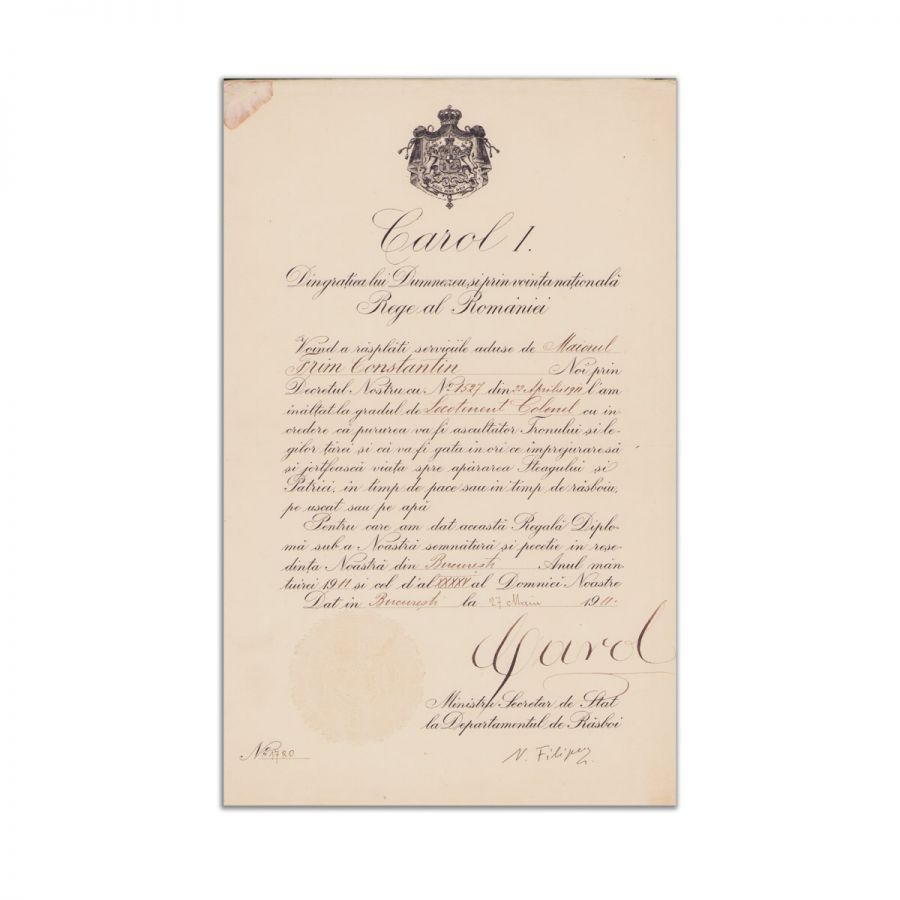 Carol I.
Din grația lui Dumnezeu și prin voința națională
Rege al României
Voind a răsplăti serviciile aduse de Maiorul
Constantin Noi prin
Decretul Nostru cu No. 1527 din 22 Aprilie 1911 l'am
înălțat la gradul de Locotenent Colonel cu in
credere că pururea va fi ascultător Tronului și le-
gilor țărei și că va fi gata în ori ce împrejurare să
și jertfească viața spre apărarea Steagului și
Patriei, in timp de pace sau in timp de răsboiu,
pe uscat sau pe apă
Pentru care am dat această Regală Diplo-
mă sub a Noastră semnătură și pecetie in rese
dința Noastră din București Anul mân
tuirei 1911 și cel d'al XXXXV al Domniei Noastre
Dat in București la 27 Maiu 1911.
Carol
Ministru Secretar de Stat
la Departamentul de Răsboi
No. 1780
N. Filipescu